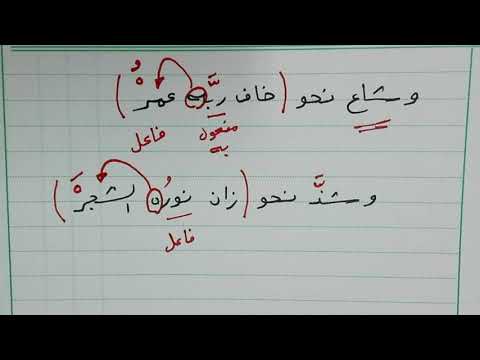 وشاع نحو (خاف ربَّه عمرْ)
مفعول به
فاعل
وشذَّ نحو (زان نورُه الشجرْ)
فاعل